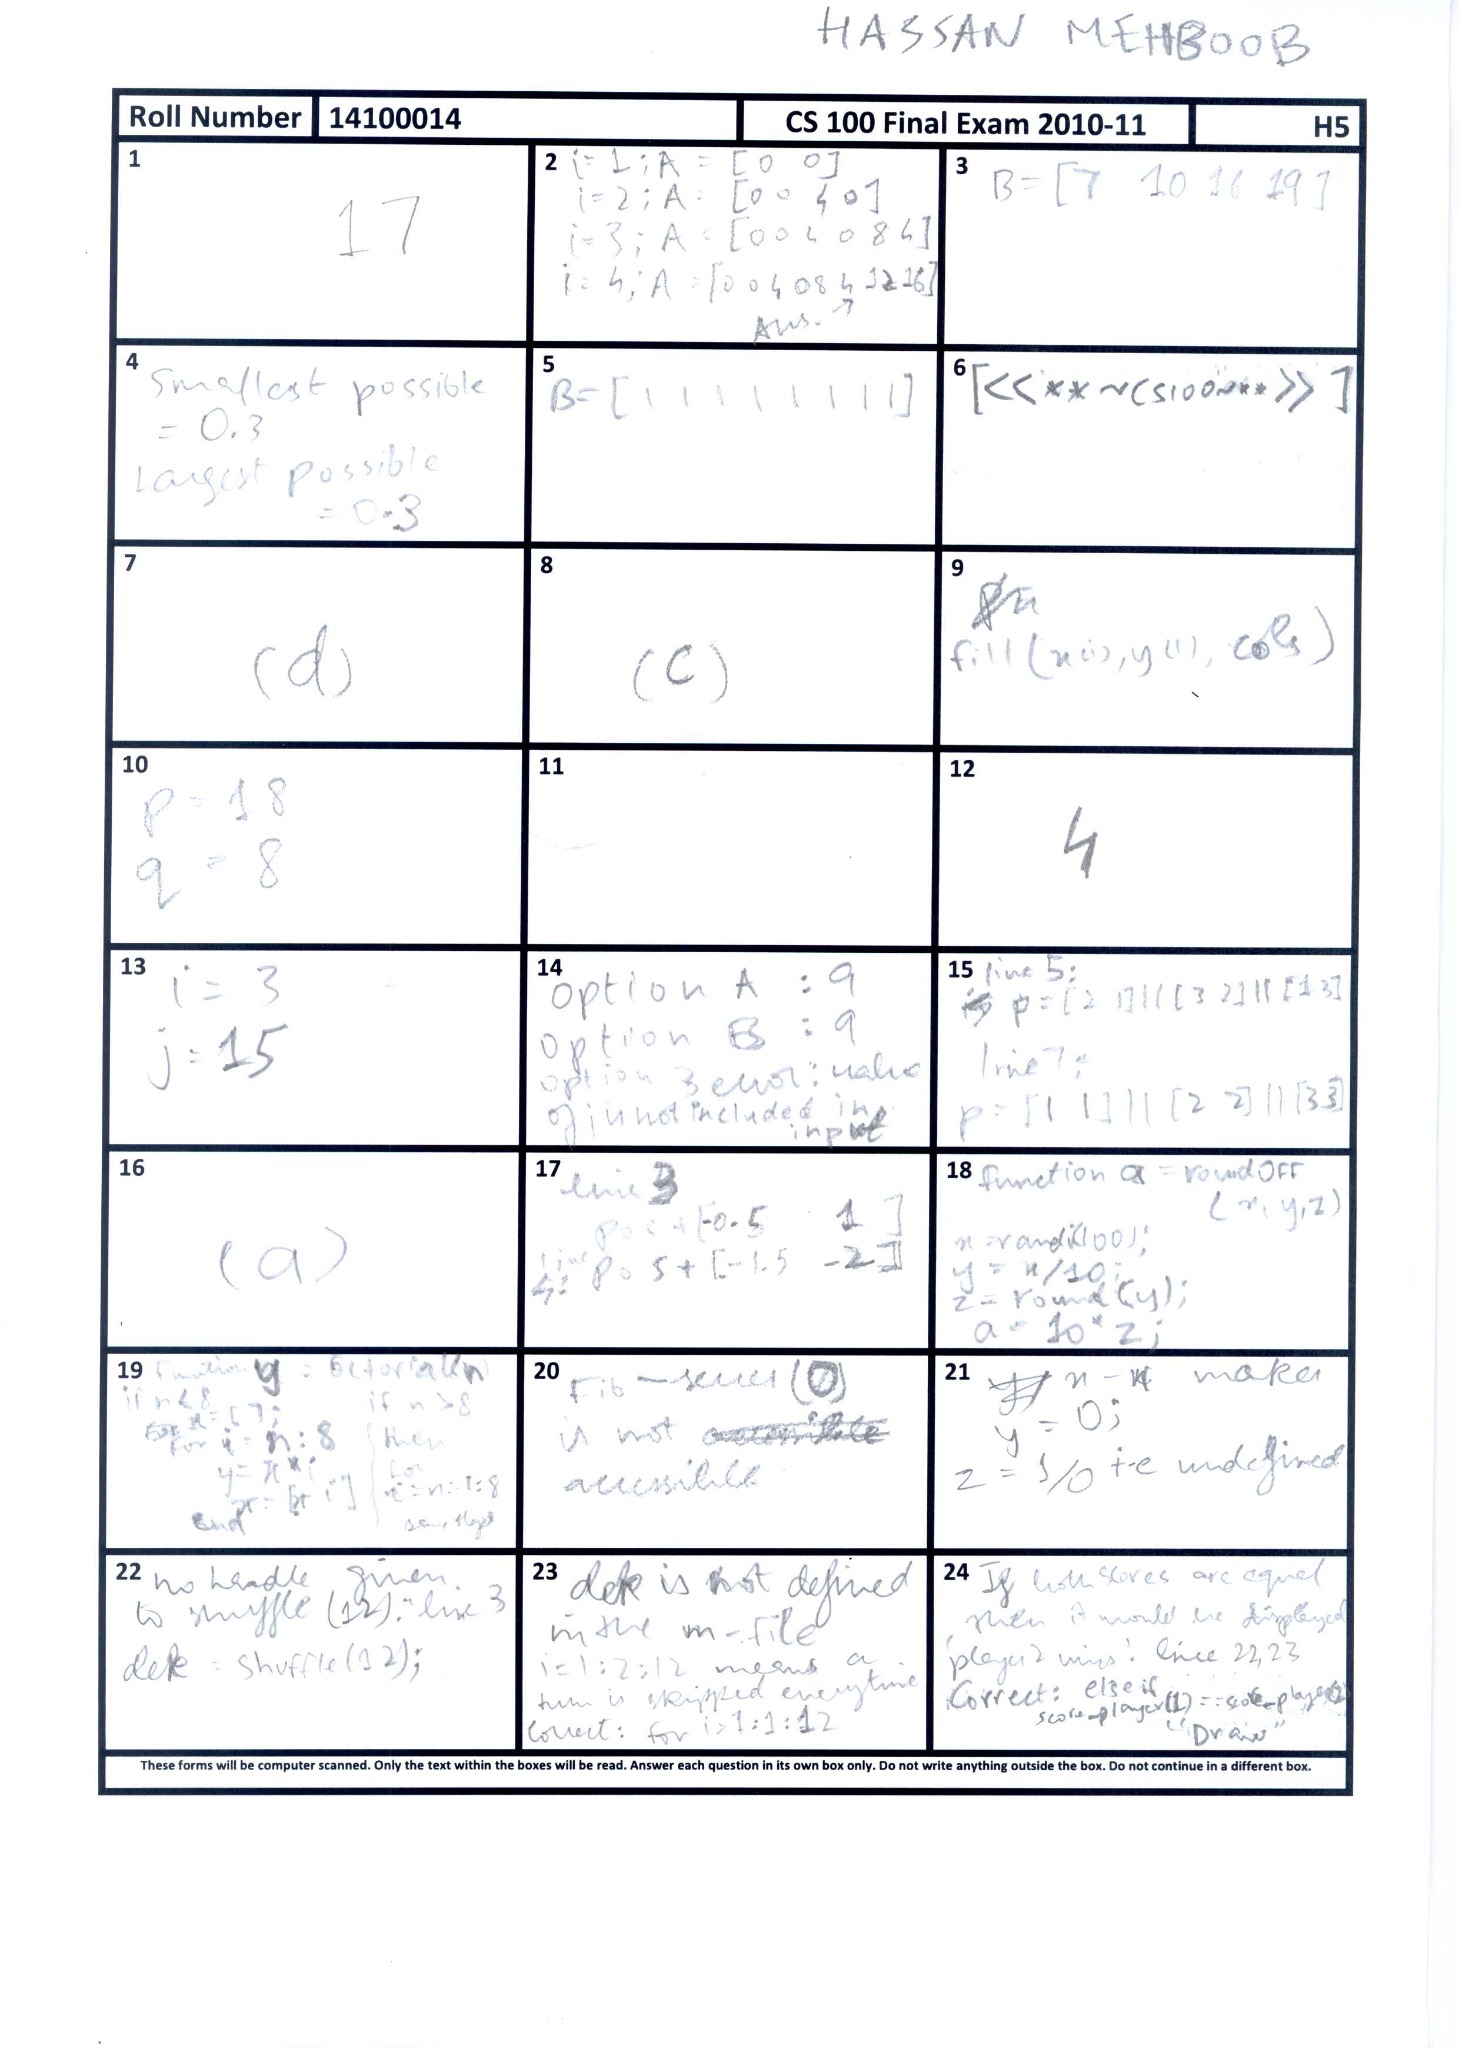 HASSAN MEHBOOB
Roll Number 14100014 CS 100 Final Exam 2010-11 H5
1
17
2 i=1; A = [0 0]
i=2; A = [0 0 4 0]
i=3; A = [0 0 4 0 8 4]
i=4; A = [0 0 4 0 8 4 12 16]
Ans. ↑
3 B = [7 10 16 19]
4 Smallest possible
= 0.3
Largest possible
= 0.3
5
B = [1 1 1 1 1 1 1 1]
6 [<<**~CS100~**>>]
7
(d)
8
(c)
9
fill(x(i), y(i), cols)
10
p = 18
q = 8
11
12
4
13
i = 3
j = 15
14
option A : 9
option B : 9
option 3 error: value
of j is not included in
input
15 line 5:
p = [2 1] || [3 2] || [1 3]
line 7:
p = [1 1] || [2 2] || [3 3]
16
(a)
17 line 3
pos + [-0.5 1]
line
4: pos + [-1.5 -2]
18 function a = roundOff
(x, y, z)
x = randi(100);
y = x/10;
z = round(y);
a = 10*z;
19 Function y =
if n<8 if n>8
for i = n:8 then
y = x*i for
x = [x i] i = n:-1:8
end steps
20
Fib-series(0)
is not
accessible
21
x - x makes
y = 0;
z = 1/0 undefined
22 no handle given
to shuffle(12): line 3
dek = shuffle(12);
23 dek is not defined
in the m-file
i=1:2:12 means a
turn is skipped everytime
Correct: for i=1:1:12
24 If both scores are equal
then it would be displayed
'player 2 wins'. line 22,23
Correct: elseif
score_player(1) == score_player(2)
"Draw"
These forms will be computer scanned. Only the text within the boxes will be read. Answer each question in its own box only. Do not write anything outside the box. Do not continue in a different box.